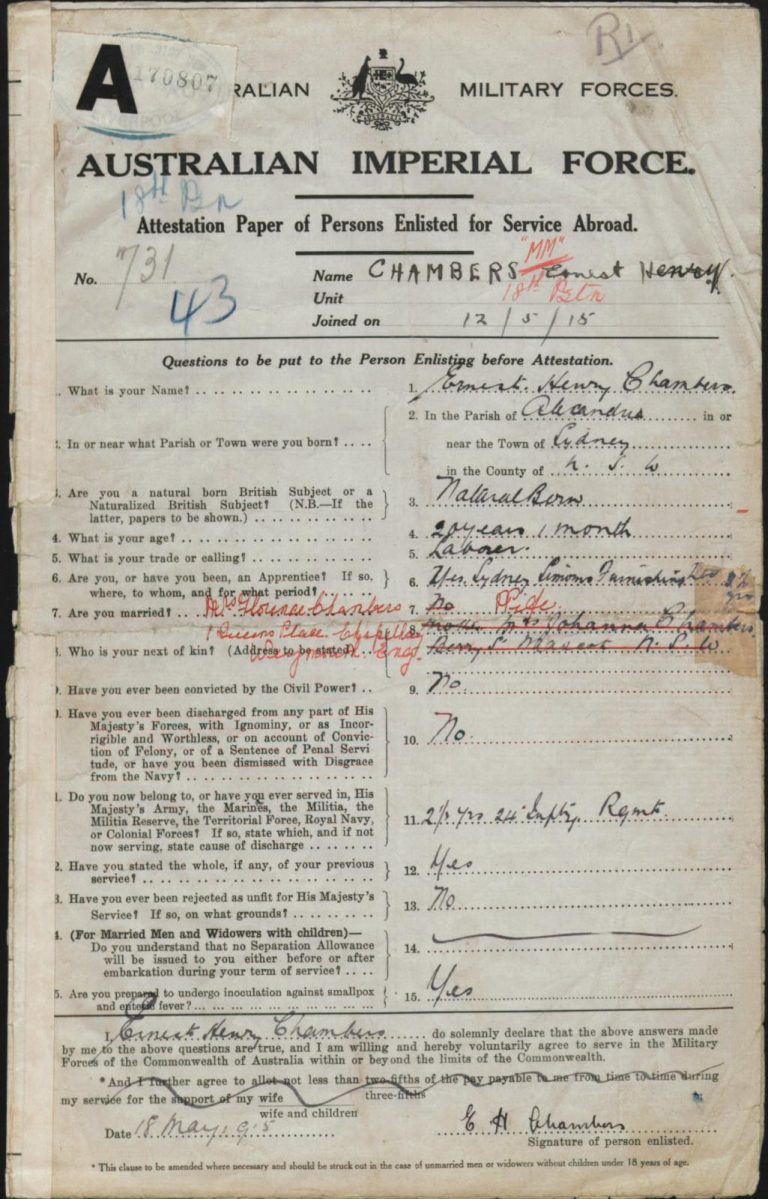 R1
A
170807
RALIAN MILITARY FORCES.
AUSTRALIAN IMPERIAL FORCE.
18th Bn
Attestation Paper of Persons Enlisted for Service Abroad.
"MM"
No. 731 Name CHAMBERS Ernest Henry.
43 Unit 18th Btn
Joined on 12/5/15
Questions to be put to the Person Enlisting before Attestation.
. What is your Name? 1. Ernest Henry Chambers.
2. In the Parish of Alexandria in or
. In or near what Parish or Town were you born? near the Town of Sydney
in the County of N. S. W
3. Are you a natural born British Subject or a
Naturalized British Subject? (N.B.—If the 3. Natural Born
latter, papers to be shown.)
4. What is your age? 4. 20 years 1 month
5. What is your trade or calling? 5. Laborer.
6. Are you, or have you been, an Apprentice? If so, 6. Yes Sydney Simons Furnishing
where, to whom, and for what period?
7. Are you married? 7. No
Wife
Mrs Florence Chambers
1 Queens Place
8. Mother Mrs Johanna Chambers
. Who is your next of kin? (Address to be stated) Berry St Mascot N. S. W
Weymouth Eng.
. Have you ever been convicted by the Civil Power? 9. No
. Have you ever been discharged from any part of His
Majesty's Forces, with Ignominy, or as Incor-
rigible and Worthless, or on account of Convic-
tion of Felony, or of a Sentence of Penal Servi 10. No.
tude, or have you been dismissed with Disgrace
from the Navy?
1. Do you now belong to, or have you ever served in, His
Majesty's Army, the Marines, the Militia, the
Militia Reserve, the Territorial Force, Royal Navy, 11. 2½ yrs 24 Inftry. Rgmt.
or Colonial Forces? If so, state which, and if not
now serving, state cause of discharge
2. Have you stated the whole, if any, of your previous 12. Yes
service?
3. Have you ever been rejected as unfit for His Majesty's 13. No
Service? If so, on what grounds?
4. (For Married Men and Widowers with children)—
Do you understand that no Separation Allowance 14.
will be issued to you either before or after
embarkation during your term of service?
5. Are you prepared to undergo inoculation against smallpox 15. Yes
and enteric fever?
I, Ernest Henry Chambers do solemnly declare that the above answers made
by me to the above questions are true, and I am willing and hereby voluntarily agree to serve in the Military
Forces of the Commonwealth of Australia within or beyond the limits of the Commonwealth.
*And I further agree to allot not less than two-fifths of the pay payable to me from time to time during
three-fifths
my service for the support of my wife
wife and children
Date 18 May 1915 E H Chambers
Signature of person enlisted.
* This clause to be amended where necessary and should be struck out in the case of unmarried men or widowers without children under 18 years of age.